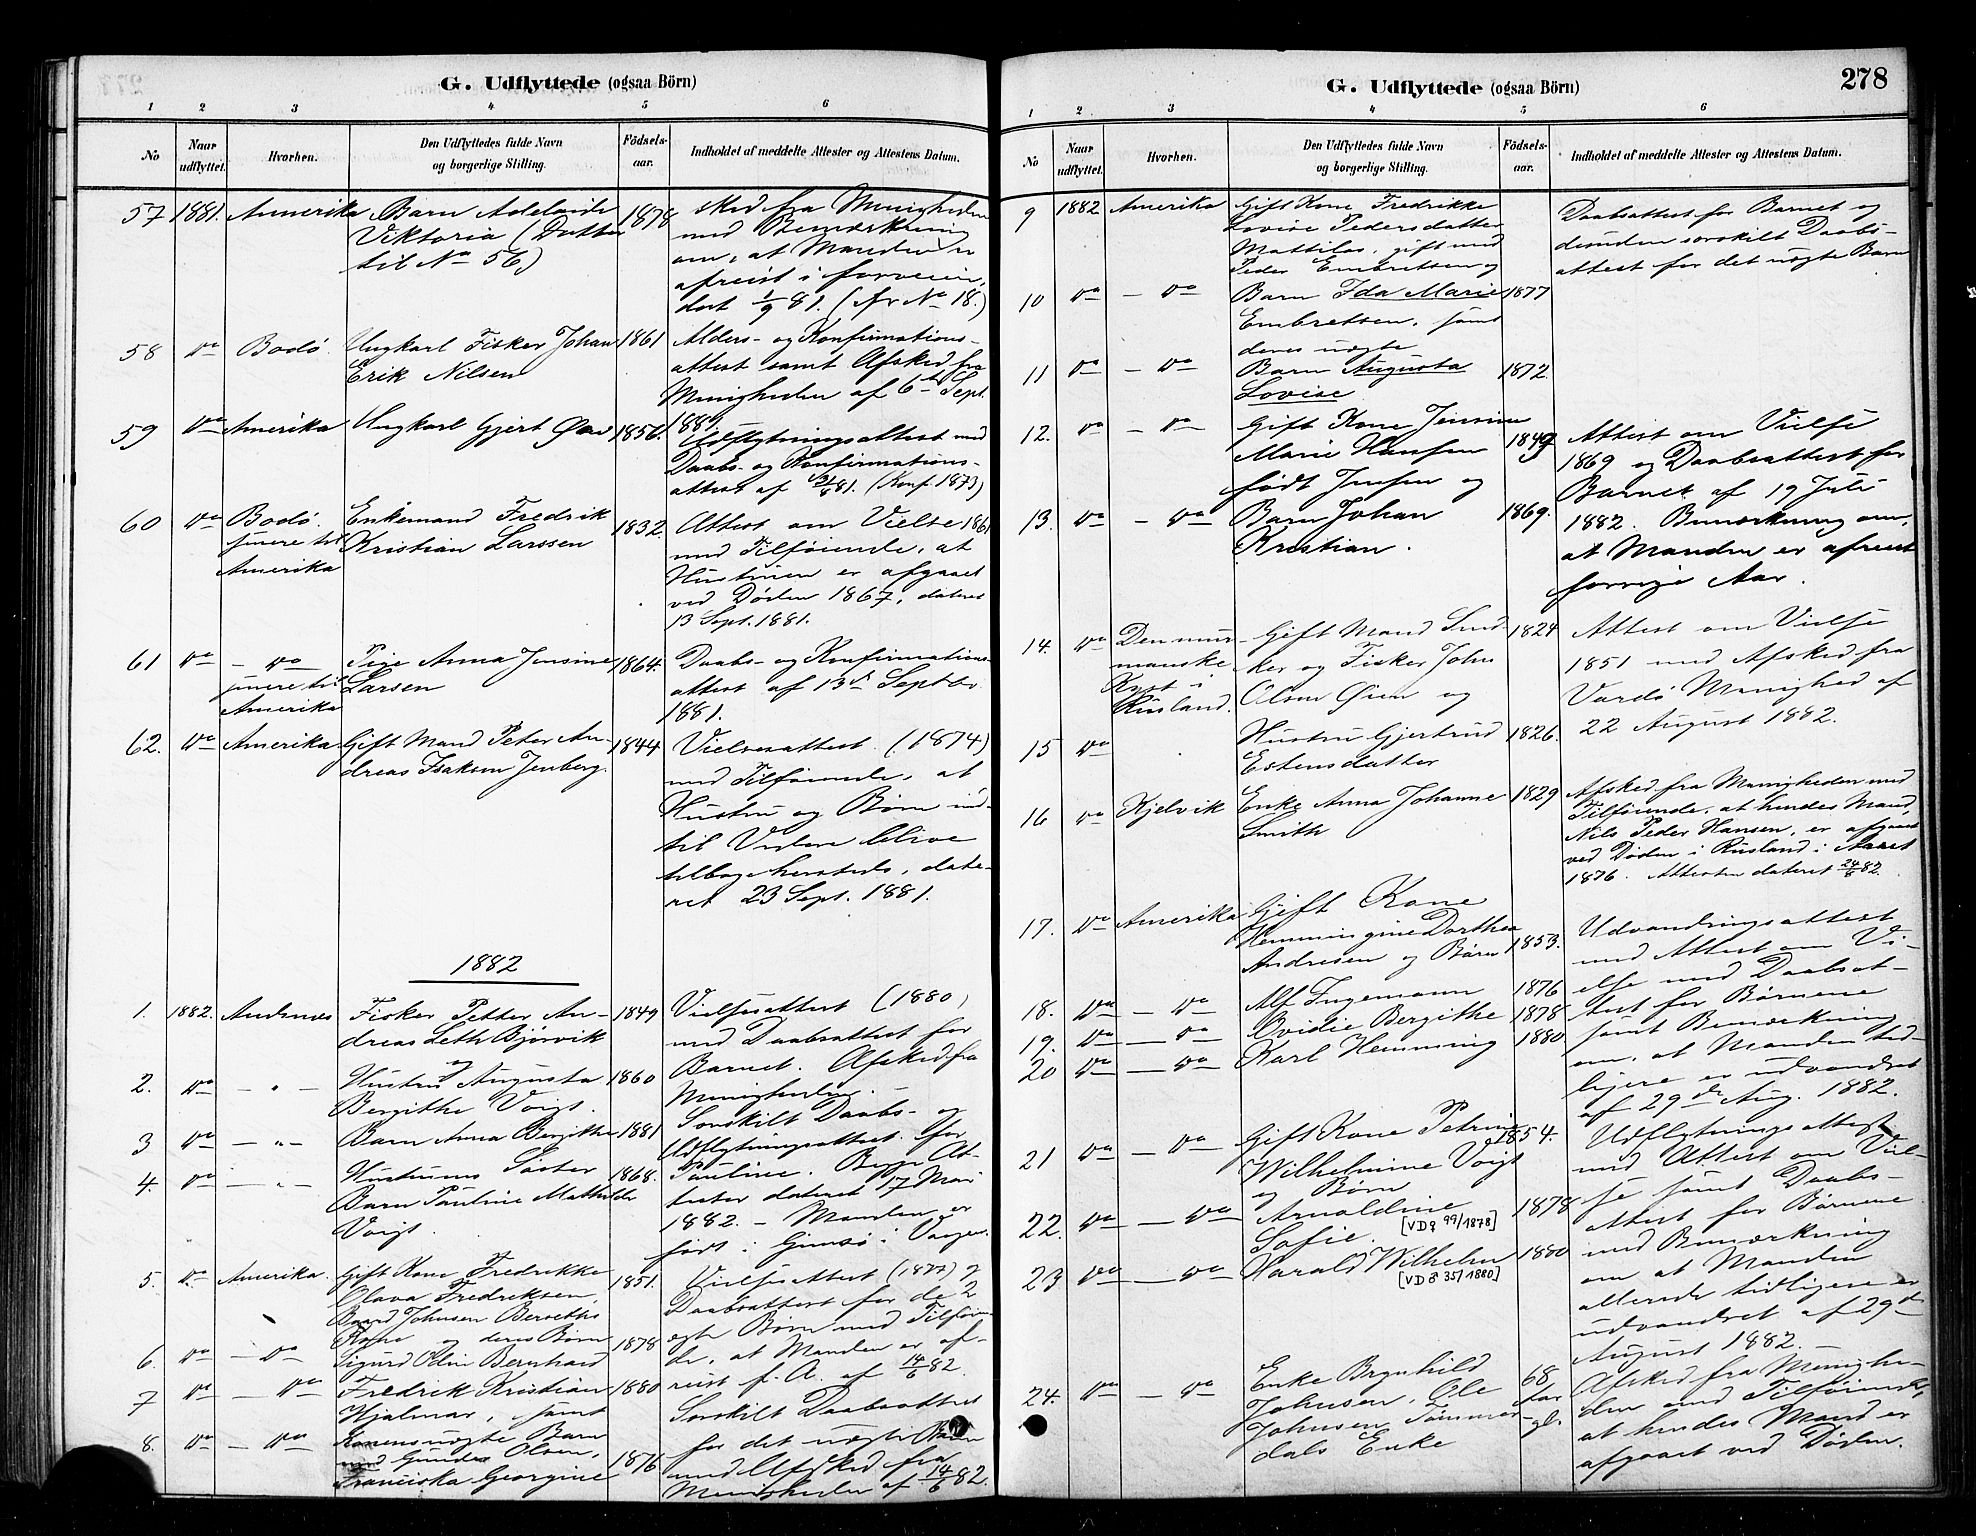 G. Udflyttede (ogsaa Börn)
1 2 3 4 5 6
No
Naar udflyttet.
Hvorhen.
Den Udflyttedes fulde Navn og borgerlige Stilling.
Födsels-aar.
Indholdet af meddelte Attester og Attestens Datum.
57 1881. Amerika Barn Adelaide 1878 sked fra Menigheden
Viktoria (Datter med Bemærkning
til No 56) om, at Manden er
afreist i forveien,
dat 1/9 81. (Jfr No 18.)
58 do Bodö. Ungkarl Fisker Johan 1861 Alders- og Konfirmations-
Erik Nilsen attest samt Afsked fra
Menigheden af 6te Sept.
1881.
59 do Amerika Ungkarl Gjert 1856. Udflytningsattest med
Daabs- og Konfirmations-
attest af 81. (Konf. 1873)
60 do Bodö. Enkemand Fredrik 1832. Attest om Vielse 1861
senere til Kristian Larssen med Tilföiende, at
Amerika Hustruen er afgaaet
ved Döden 1867, dateret
13 Sept. 1881.
61 do - do Pige Anna Jensine 1864. Daabs- og Konfirmations-
senere til Larsen attest af 13de Septbr.
Amerika 1881.
62. do Amerika Gift Mand Peter An- 1844 Vielsesattest (1874)
dreas Isaksen Jenberg. med Tilföiende, at
Hustru og Börn ind-
til Videre blive
tilbage hersteds, date-
ret 23 Sept. 1881.
1882
1. 1882. Andenæs Fisker Petter An- 1849 Vielsesattest (1880)
dreas Leth Björvik med Daabsattest for
og Barnet. Afsked fra
2. do - " - Hustru Augusta 1860 Menigheden.
Bergithe Voigt. Særskilt Daabs- og
3 do - " - Barn Anna Bergithe 1881 Udflytningsattest for
4. do - " - Hustruens Söster 1868. Pauline. Begge At-
Barn Pauline Mathilde tester dateret 17 Mai
Voigt. 1882. - Manden er
født i Gimsö i Vaagen.
5. do Amerika. Gift Kone Fredrikke 1851. Vielsesattest (1877) &
Olava Fredriksen, Daabsattest for de 2
Baard Johnsen Berseths ægte Börn med Tilföien-
Kone og deres Börn de, at Manden er af-
6. do - do Sigurd Odin Bernhard 1878 reist f. A. af 14/6 82.
7 do - do Fredrik Kristian 1880 Særskilt Daabsattest
Hjalmar, samt for det uægte Barn
8. do - do Konens uægte Barn med Afsked fra
med Gunder Olsen, 1876 Menigheden af 14/6 82.
Franciska Georgine
G. Udflyttede (ogsaa Börn) 278
1 2 3 4 5 6
No
Naar udflyttet.
Hvorhen.
Den Udflyttedes fulde Navn og borgerlige Stilling.
Födsels-aar.
Indholdet af meddelte Attester og Attestens Datum.
9 1882 Amerika Gift Kone Fredrikke Daabsattest for Barnet og
Lovise Pedersdatter desuden særskilt Daabs-
Mattilas, gift med attest for det uægte Barn
Peder Embretsen og
10 do - do Barn Ida Marie 1877
Embretsen, samt
deres uægte
11 do - do Barn Augusta 1872.
Lovise
12. do - do Gift Kone Jensine 1849 Attest om Vielse
Marie Hansen 1869 og Daabsattest for
født Jensen og Barnet af 19 Juli
13. do - do Barn Johan 1869. 1882. Bemærkning om,
Kristian. at Manden er afreist
forrige Aar.
14. do Den mur- Gift Mand Sned- 1824 Attest om Vielse
manske ker og Fisker John 1851 med Afsked fra
Kyst i Olsen Öien og Vardö Menighed af
Rusland. 22 August 1882.
15 do Hustru Gjertrud 1826.
Estensdatter
16 do Kjelvik Enke Anna Johanne 1829 Afsked fra Menigheden med
Smith Tilföiende, at hendes Mand,
Nils Peder Hansen, er afgaaet
ved Döden i Rusland i Aaret
1876. Attesten dateret 82.
17. do Amerika Gift Kone Udvandringsattest
Hemmingine Dorthea 1853. med Attest om Vi-
Andresen og Börn else med Daabsat-
18. do - do Alf Ingemann 1876 test for Börnene
19. do - do Ovidie Bergithe 1878 samt Bemærkning
20 do - do Karl Hemming 1880 om, at Manden tid-
ligere er udvandret
af 29de Aug. 1882.
21 do - do Gift Kone Petrine 1854. Udflytningsattest
Wilhelmine Voigt med Attest om Viel-
og Börn se samt Daabs-
22. do - do Arnoldine 1878 attest for Börnene
Sofie. [VD♀ 99/1878] med Bemærkning
23 do - do Harald Wilhelm 1880 om at Manden
[VD♂ 35/1880] allerede tidligere er
udvandret af 29de
August 1882.
24. do - do Enke Brynhild 68 Afsked fra Menighe-
Johnsen, Ole Aar den med Tilföiende,
Johnsen Tömmer- gl. at hendes Mand er
dals Enke afgaaet ved Döden.